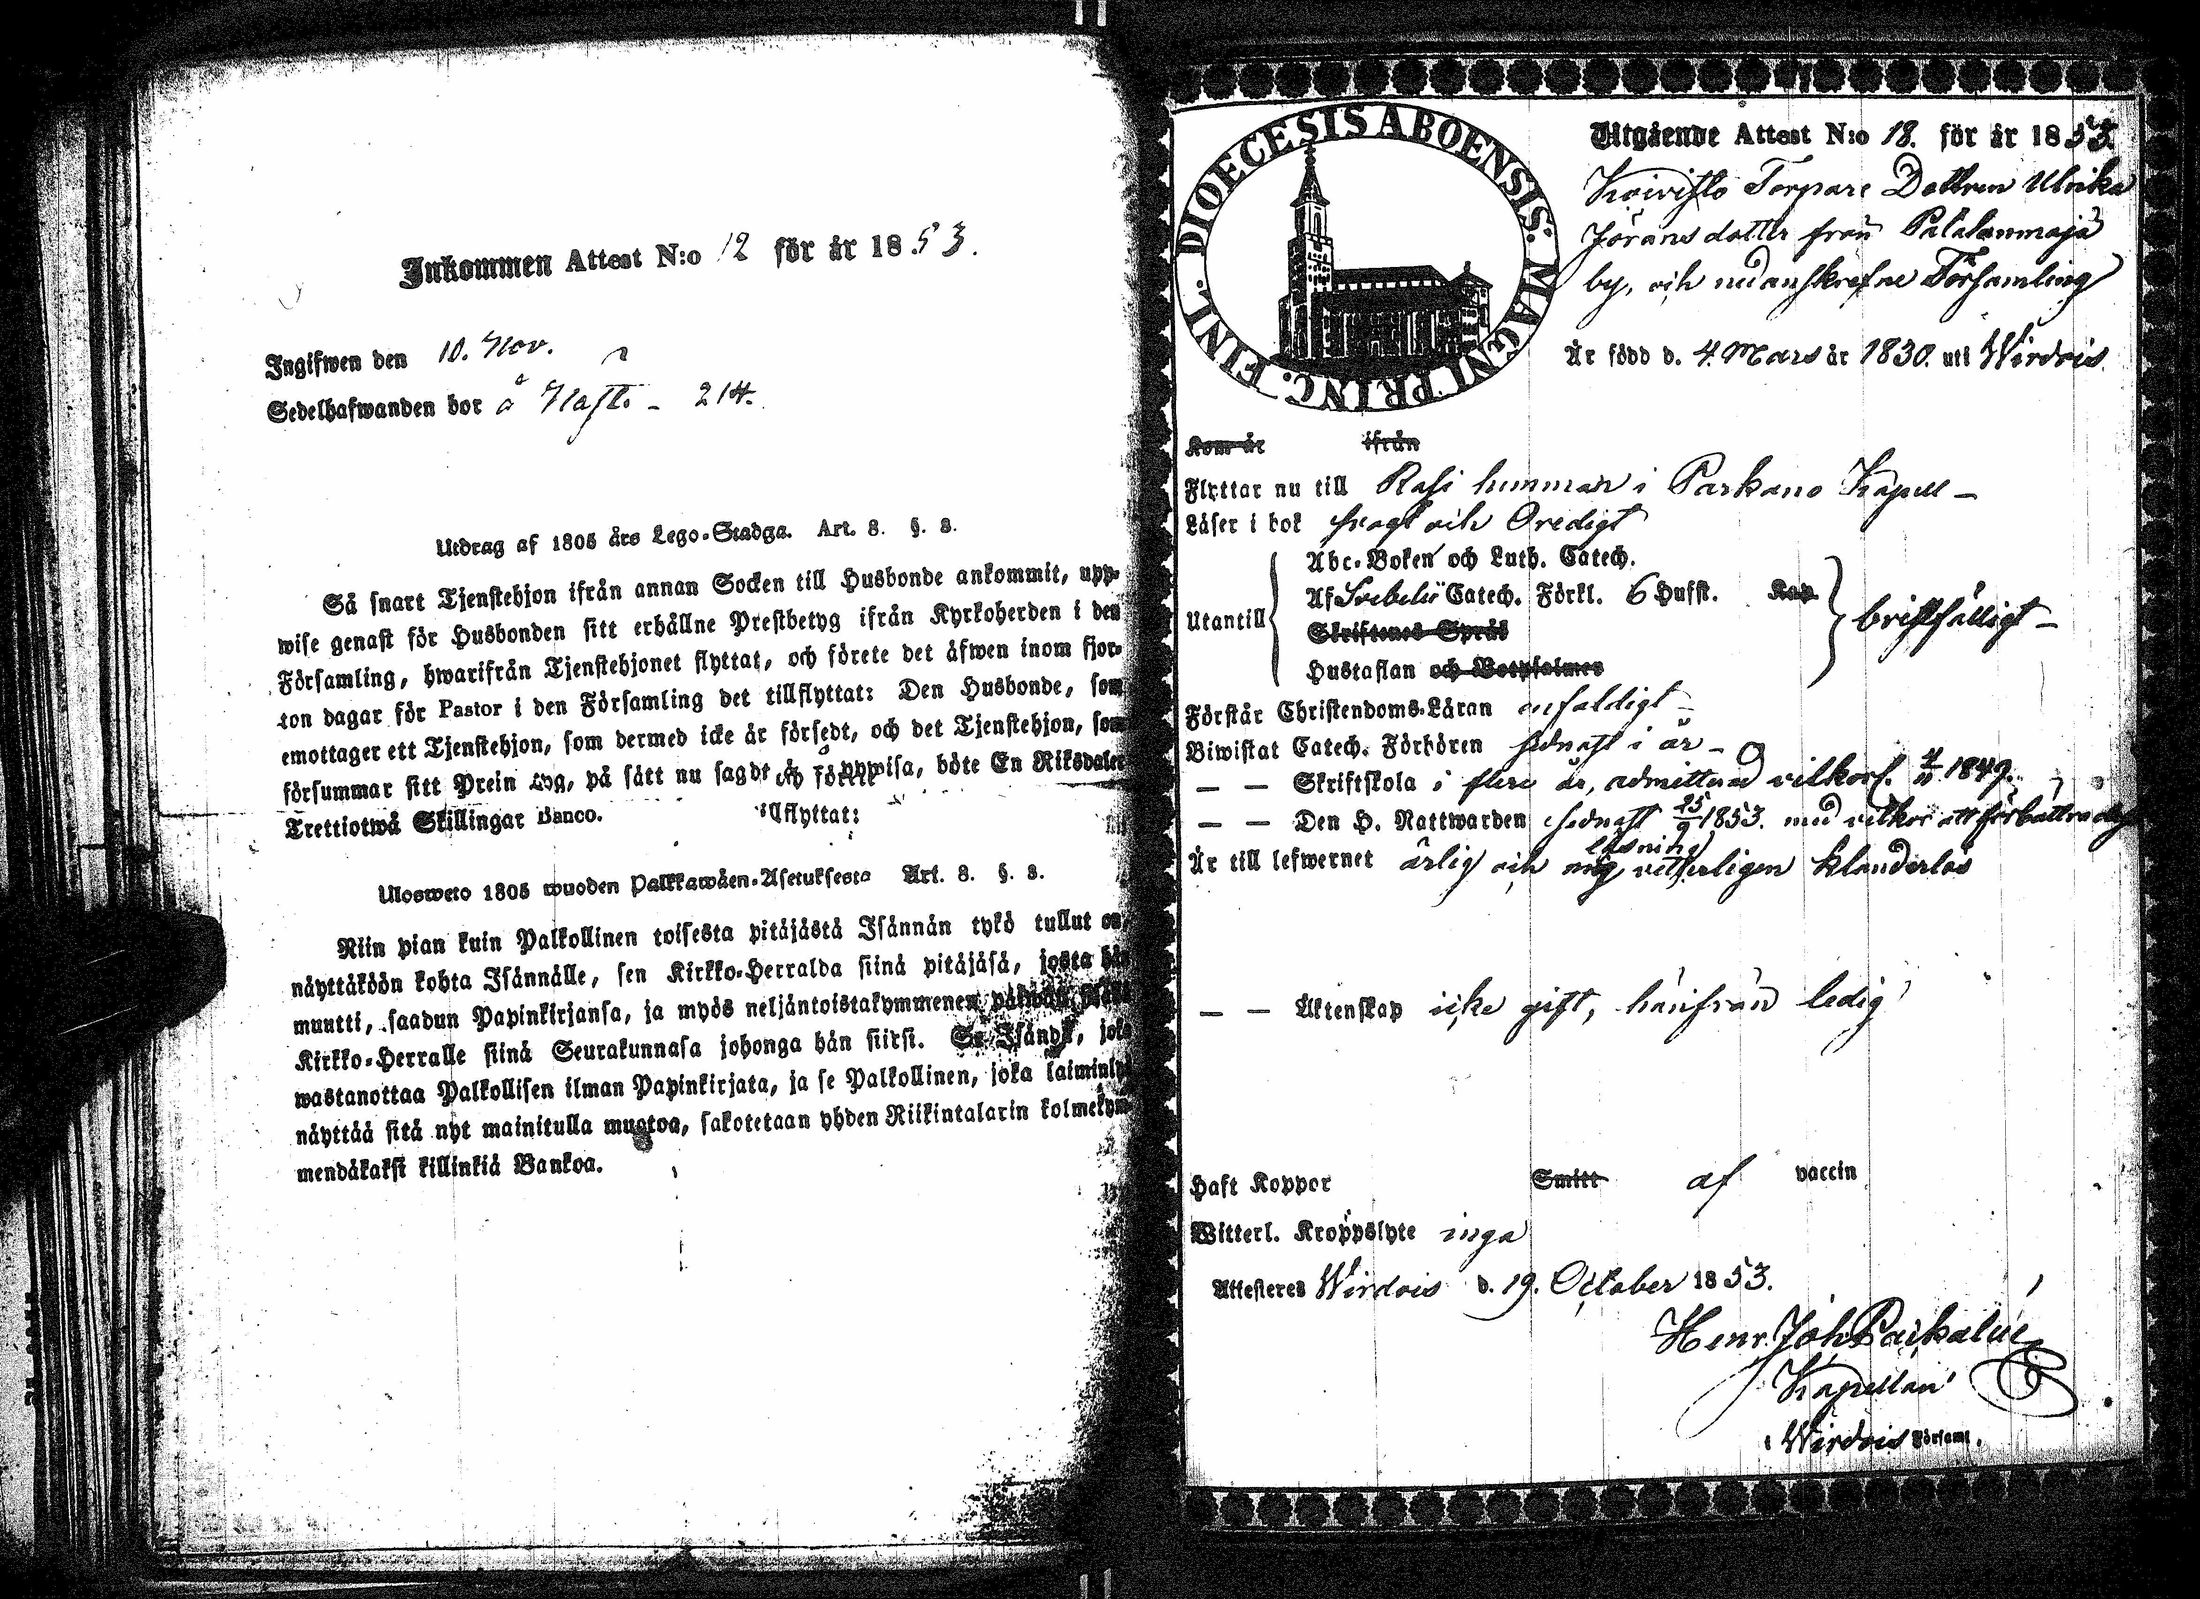 Inkommen Attest N:o 12 för år 1853.
Ingifwen den 10. Nov.
Sedelhafwanden bor å 214.
Utdrag af 1805 års Lego-Stadga. Art. 8. §. 3.
Så snart Tjenstehjon ifrån annan Socken till Husbonde ankommit, upp-
wise genast för Husbonden sitt erhållne Prestbetyg ifrån Kyrkoherden i den
Församling, hwarifrån Tjenstehjonet flyttat, och förete det äfwen inom fjor-
ton dagar för Pastor i den Församling det tillflyttat: Den Husbonde, som
emottager ett Tjenstehjon, som dermed icke är försedt, och det Tjenstehjon, som
försummar sitt på sätt nu sagdt är uppwisa, böte En Riksdaler
Trettiotwå Skillingar Banco.
Ulosweto 1805 wuoden Palkkawäen-Asetuksesta Art. 8. §. 3.
Niin pian kuin Palkollinen toisesta pitäjästä Isännän tykö tullut on,
näyttäköön kohta Isännälle, sen Kirkko-Herralda siinä pitäjäsä, josta hän
muutti, saadun Papinkirjansa, ja myös neljäntoistakymmenen päiwän
Kirkko-Herralle siinä Seurakunnasa johonga hän siirsi. Se Isändä, joka
wastanottaa Palkollisen ilman Papinkirjata, ja se Palkollinen, joka laiminly
näyttää sitä nyt mainitulla muotoa, sakotetaan yhden Riikintalarin kolmekym-
mendäkaksi killinkiä Bankoa.
DIOECESIS ABOENSIS. MAGNI PRINC. FINL.
Utgående Attest N:o 18. för år 1853.
Koivisto Torpare Dottren Ulrika
Jöransdotter från
by, och nedanskrefne Församling
Är född d. 4. Mars år 1830. uti Wirdois.
Kom år ifrån
Flyttar nu till Rasi hemman i Parkano Kapell –
Läser i bok svagt och Oredigt
Utantill
Abc-Boken och Luth. Catech.
Af Svebelii Catech. Förkl. 6 Hufst. Kap
Skriftenes Språk
Hustaflan och Botpsalmer
bristfälligt –
Förstår Christendoms-Läran enfaldigt –
Biwistat Catech. Förhören sednast i år –
— — Skriftskola i flere år, admitterad vilkorl. 4/11 1849.
— — Den H. Nattwarden sednast 25/9 1853. med vilkor att förbättra
läsning
Är till lefwernet ärlig och vetterligen klanderlös
— — Äktenskap icke gift, härifrån ledig
Haft Koppor Smitt af vaccin
Witterl. Kroppslyte inga
Attesteres Wirdois d. 19. October 1853.
Henr. Joh.
Kapellan
i Wirdois Församl.